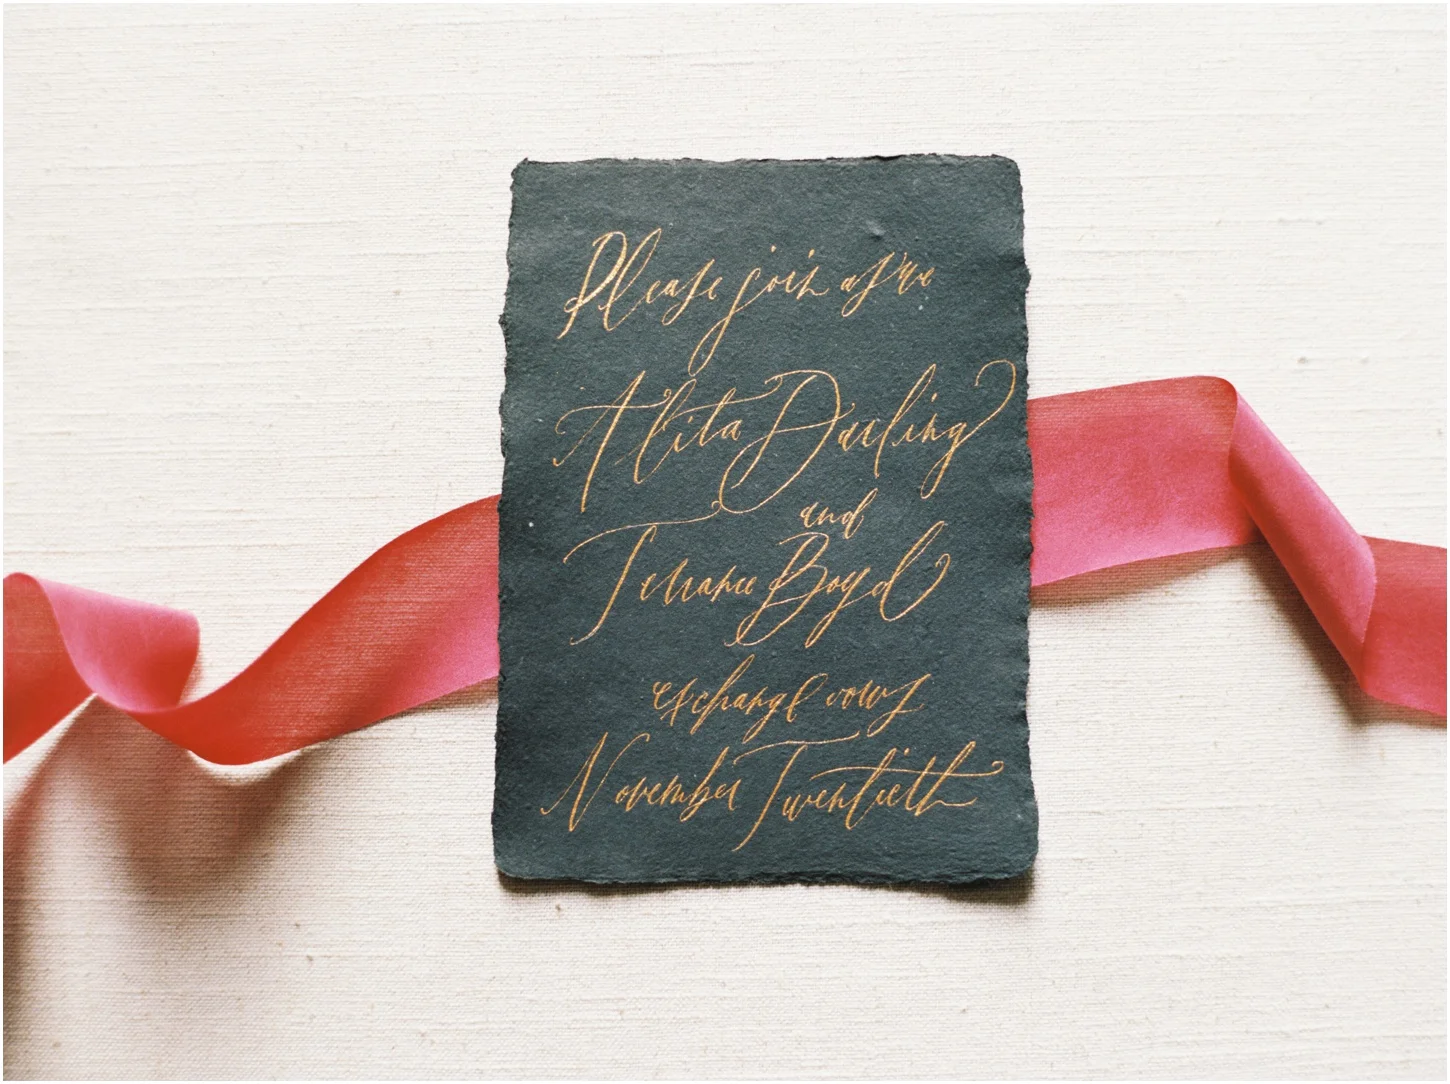 Please join as we
Alita Darling
and
Terrance Boyd
exchange vows
November Twentieth